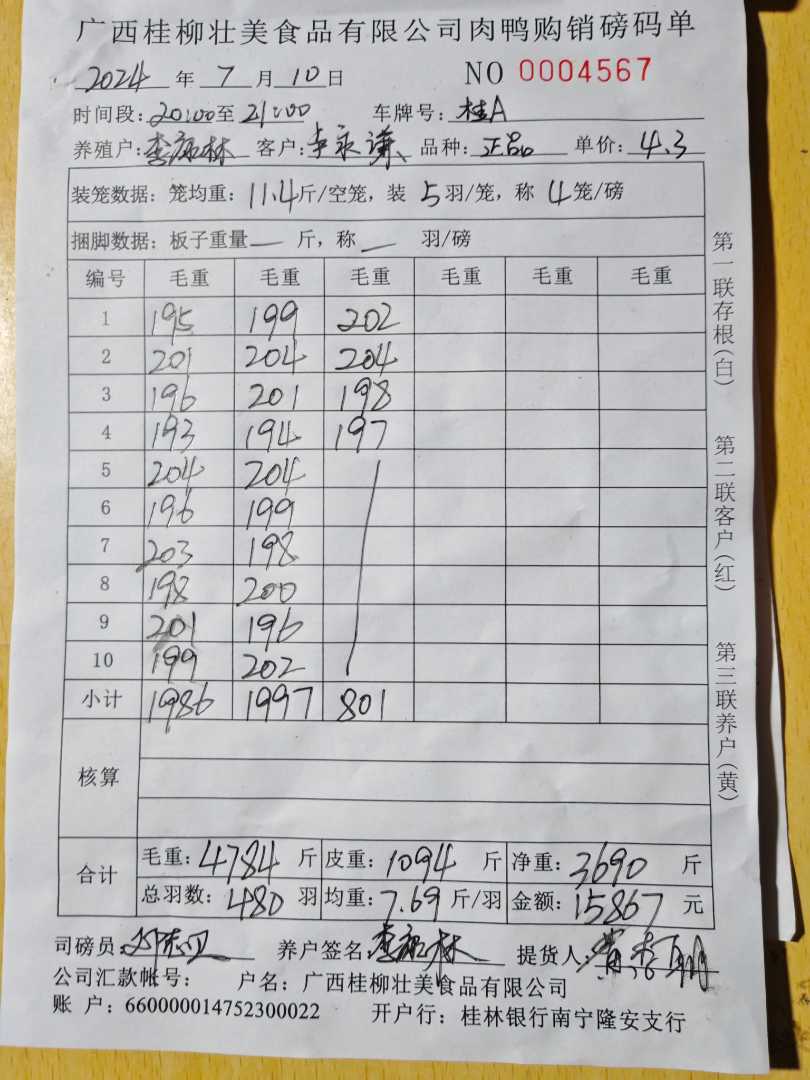 广西桂柳壮美食品有限公司肉鸭购销磅码单
2024 年 7 月 10 日 NO 0004567
时间段:20:00至 21:00 车牌号:桂A
养殖户:李康林 客户:李永谦 品种:正品 单价:4.3
装笼数据:笼均重:11.4斤/空笼,装 5 羽/笼,称 4 笼/磅
捆脚数据:板子重量— 斤,称— 羽/磅
编号 毛重 毛重 毛重 毛重 毛重 毛重
1 195 199 202
2 201 204 204
3 196 201 198
4 193 194 197
5 204 204
6 196 199
7 203 198
8 198 200
9 201 196
10 199 202
小计 1986 1997 801
核算
合计 毛重:4784 斤 皮重:1094 斤 净重:3690 斤
总羽数:480 羽 均重:7.69 斤/羽 金额:15867 元
司磅员: 养户签名:李康林 提货人:
公司汇款帐号: 户名:广西桂柳壮美食品有限公司
账 户:660000014752300022 开户行:桂林银行南宁隆安支行
第一联存根(白) 第二联客户(红) 第三联养户(黄)